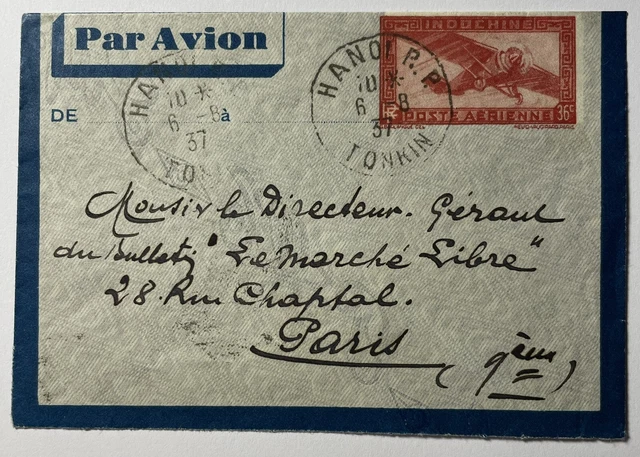 Par Avion
INDOCHINE
POSTE AÉRIENNE 36c
DE à
HANOI R.P
10 *
6 - 8
37
TONKIN
HANOI R.P
10 *
6 - 8
37
TONKIN
Monsieur le Directeur. Gérant
du Bulletin "Le Marché Libre"
28 Rue Chaptal.
Paris
(9ème)